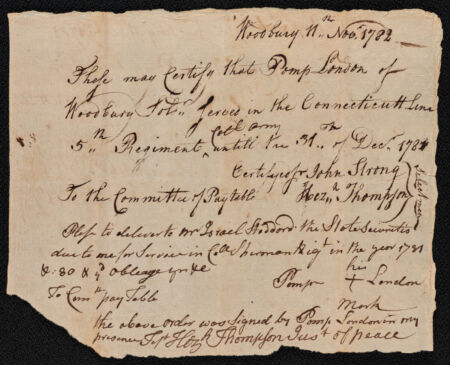 Woodbury 11th Novr. 1782
These may Certify that Pomp London of
Woodbury Served in the Connecticutt Line
5th Regiment Cotl army until the 31th of Decr. 178
Certifyed pr John Strong
To the Committee of Paytable Hezh Thompson
Select men
Plese to deliver to Mr Israel Stoddord the State Securities
due to me for Service in Colo Shurman Rigt in the year 1781
& 80 & obleage yrs &c
his
Pomp + London
mark
To Comtt pay Table
the above order was Signed by Pomp London in my
presence Test Hezh Thompson Just of peace